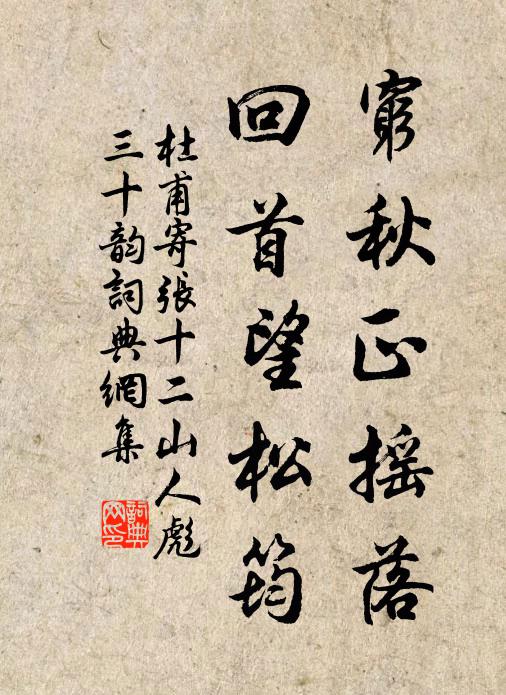 窮秋正摇落
回首望松筠
杜甫寄張十二山人彪
三十韵詞典網集
詞典
网印